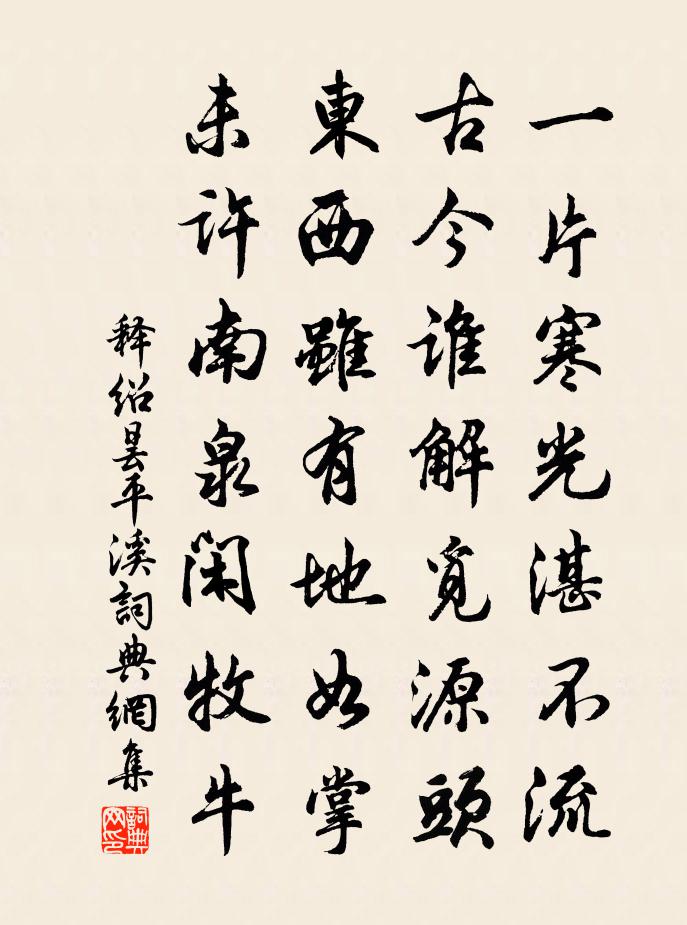 一片寒光湛不流
古今谁解覓源頭
東西雖有地如掌
未许南泉閑牧牛
释绍昙平溪詞典網集
詞典網印